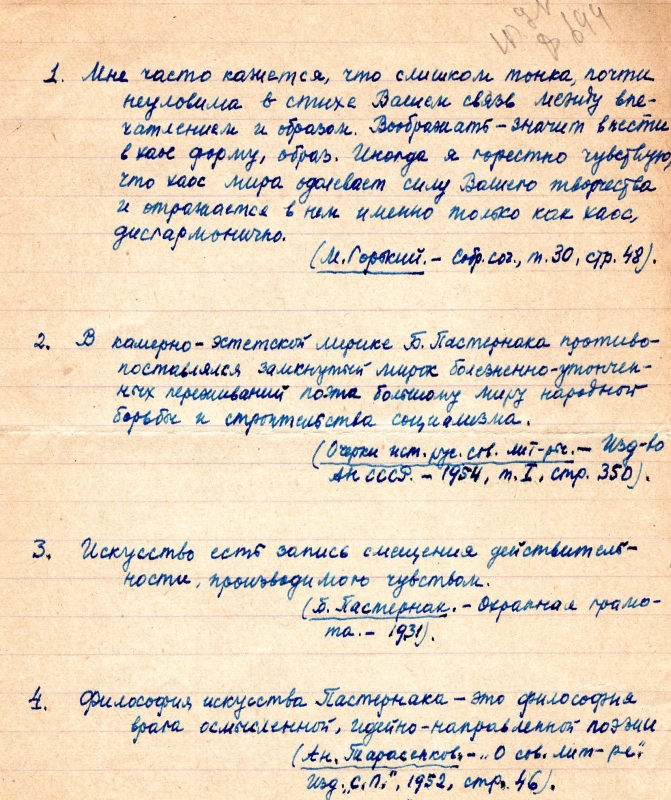 1. Мне часто кажется, что слишком тонка, почти
неуловима в стихе Вашем связь между впе-
чатлением и образом. Воображать – значит внести
в хаос форму, образ. Иногда я горестно чувствую,
что хаос мира одолевает силу Вашего творчества
и отражается в нем именно только как хаос,
дисгармонично.
(М. Горький. – Собр. соч., т. 30, стр. 48).
2. В камерно-эстетской лирике Б. Пастернака противо-
поставлялся замкнутый мирок болезненно-утончен-
ных переживаний поэта большому миру народной
борьбы и строительства социализма.
(Очерки ист. рус. сов. лит-ры. – Изд-во
АН СССР. – 1954, т. I, стр. 350).
3. Искусство есть запись смещения действитель-
ности, производимого чувством.
(Б. Пастернак. – Охранная грамо-
та. – 1931).
4. Философия искусства Пастернака – это философия
врага осмысленной, идейно-направленной поэзии
(Ан. Тарасенков. – „О сов. лит-ре".
Изд. „С.П.", 1952, стр. 46).